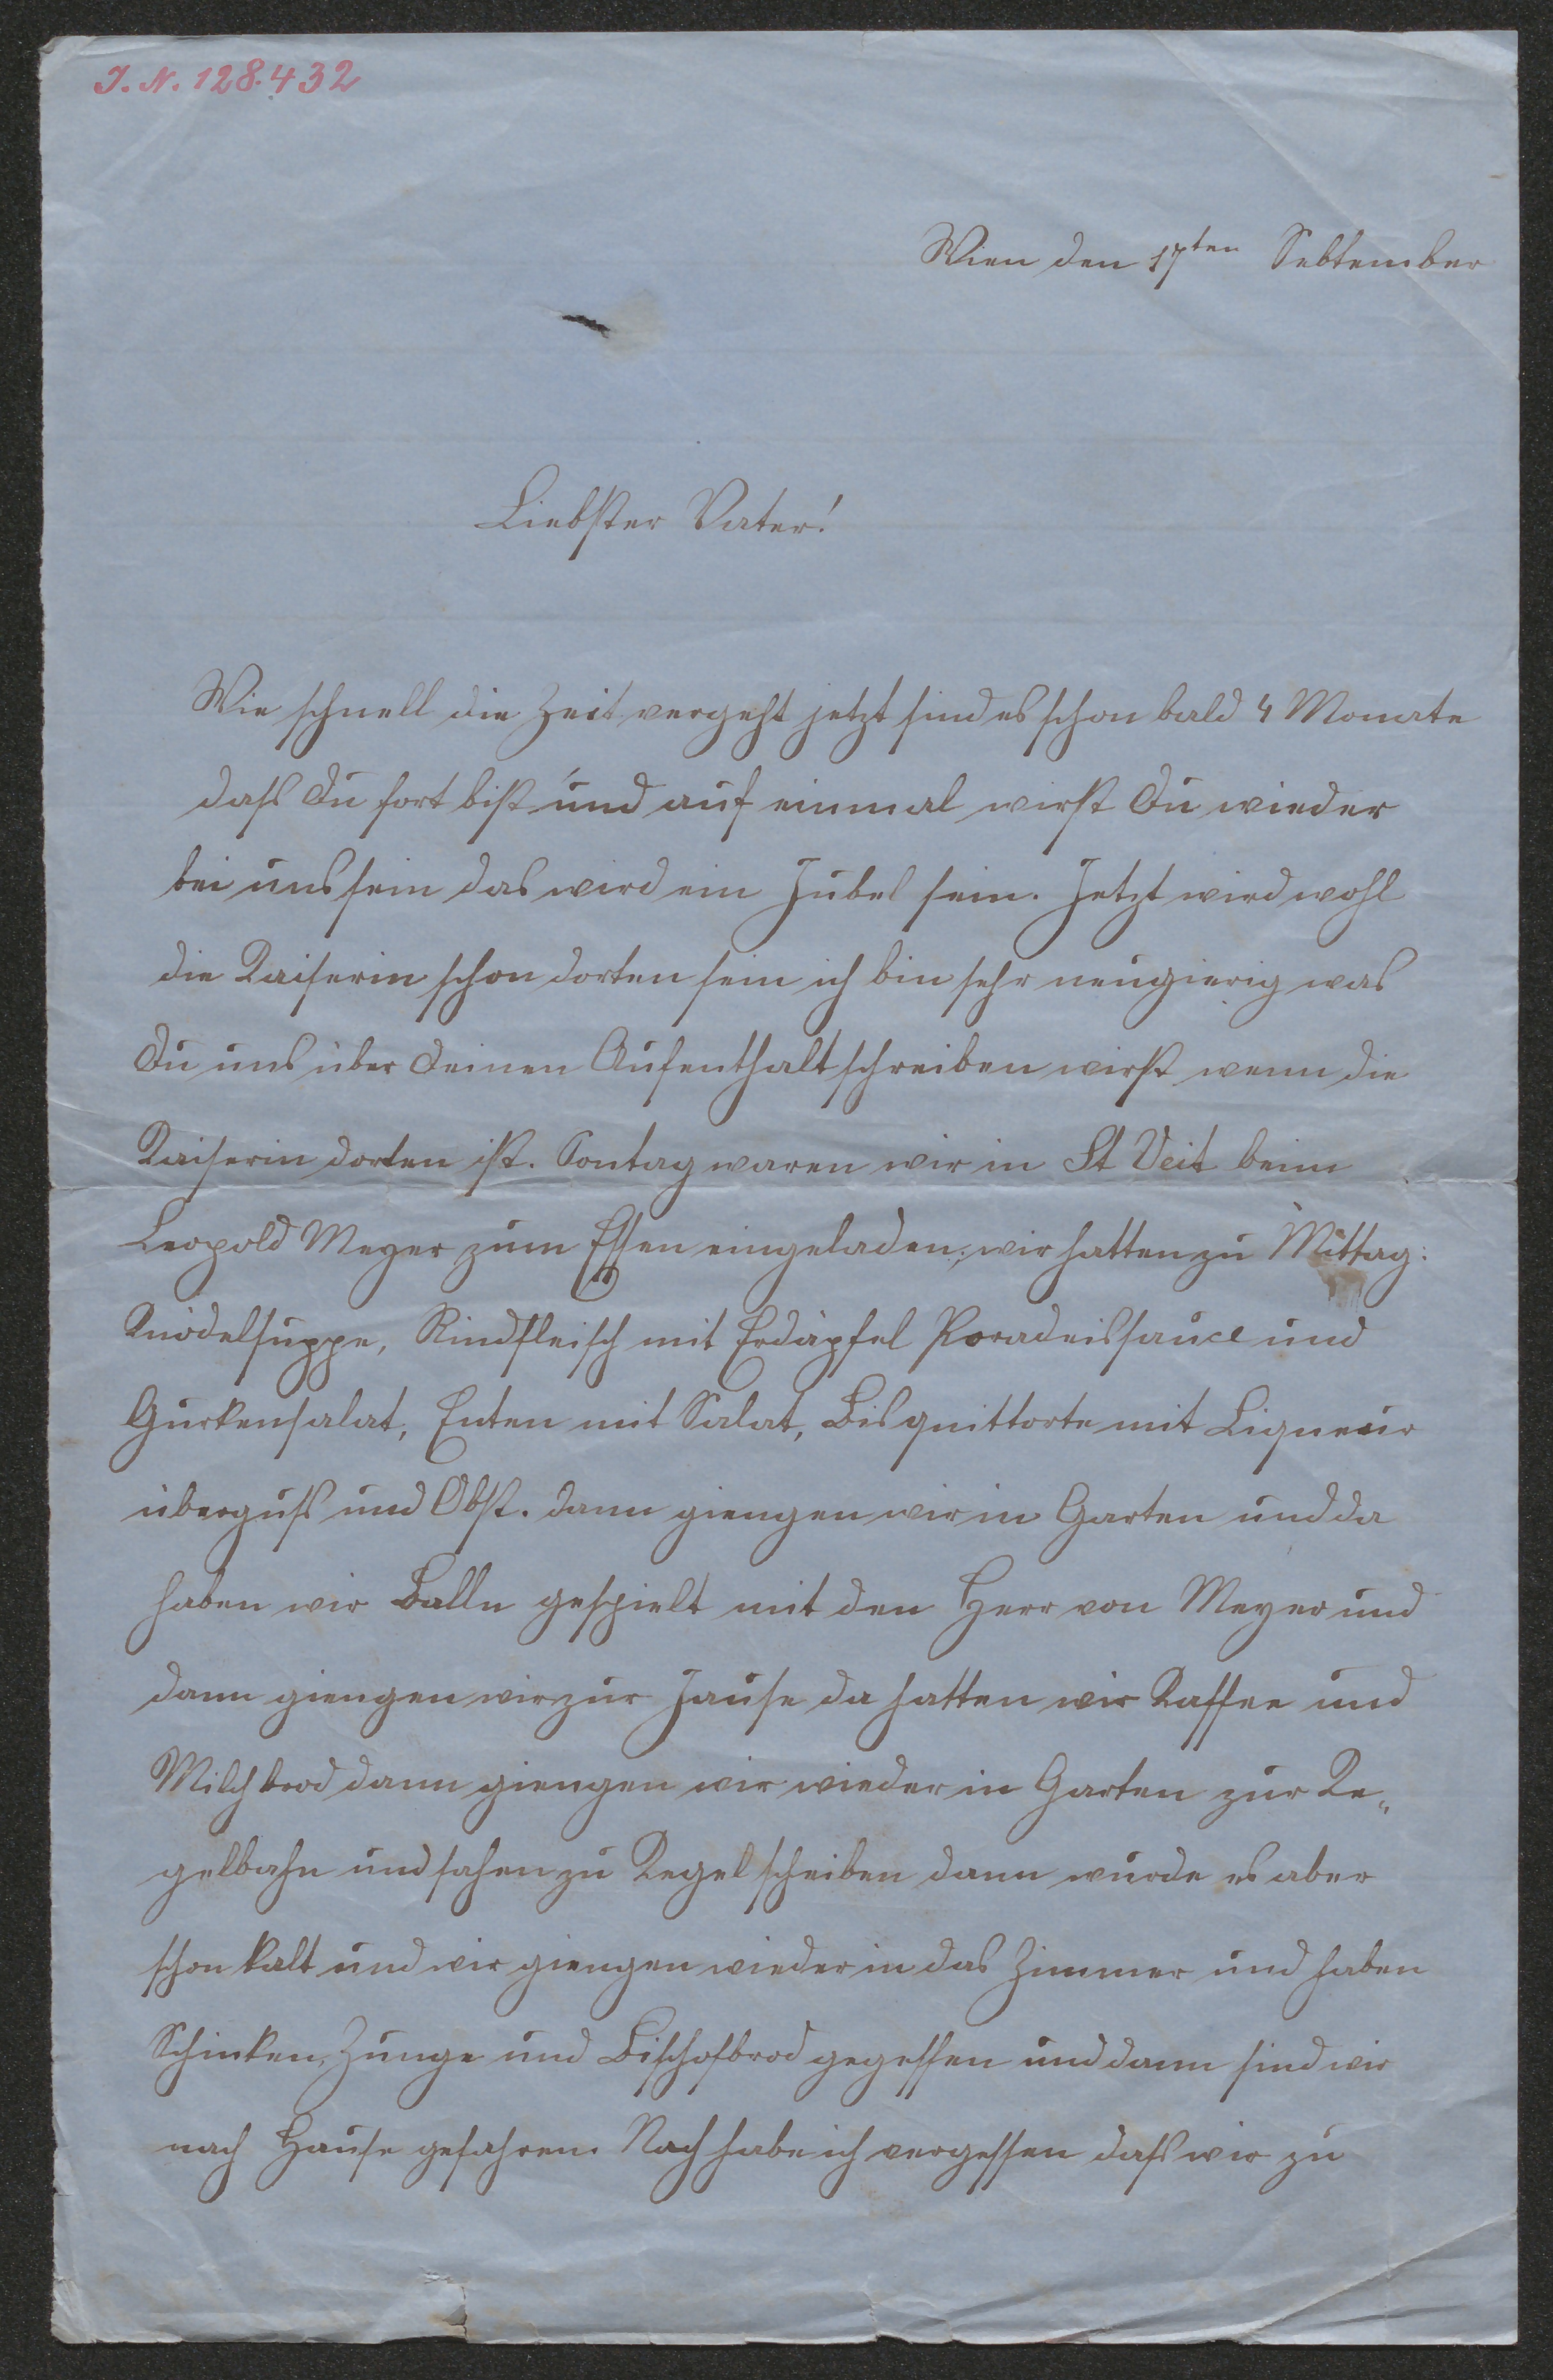 I. N. 128.432
Wien den 17ten Sebtember
Liebster Vater!
Wie schnell die Zeit vergeht jetzt sind es schon bald 4 Monate
dass Du fort bist und auf einmal wirst Du wieder
bei uns sein das wird ein Jubel sein. Jetzt wird wohl
die Kaiserin schon dorten sein ich bin sehr neugierig was
Du uns über Deinen Aufenthalt schreiben wirst wenn die
Kaiserin dorten ist. Sontag waren wir in St Veit beim
Leopold Meyer zum Essen eingeladen; wir hatten zu Mittag:
Knödelsuppe, Rindfleisch mit Erdäpfel Paradeissauce und
Gurkensalat, Enten mit Salat, Bisquittorte mit Liqueur
überguss und Obst. dann giengen wir in Garten und da
haben wir Balln gespielt mit den Herr von Meyer und
dann giengen wir zur Jause da hatten wir Kaffee und
Milchbrod dann giengen wir wieder in Garten zur Ke„
gelbahn und sahen zu Kegel scheiben dann wurde es aber
schon kalt und wir giengen wieder in das Zimmer und haben
Schinken, Zunge und Bischofbrod gegessen und dann sind wir
nach Hause gefahren. Noch habe ich vergessen dass wir zu